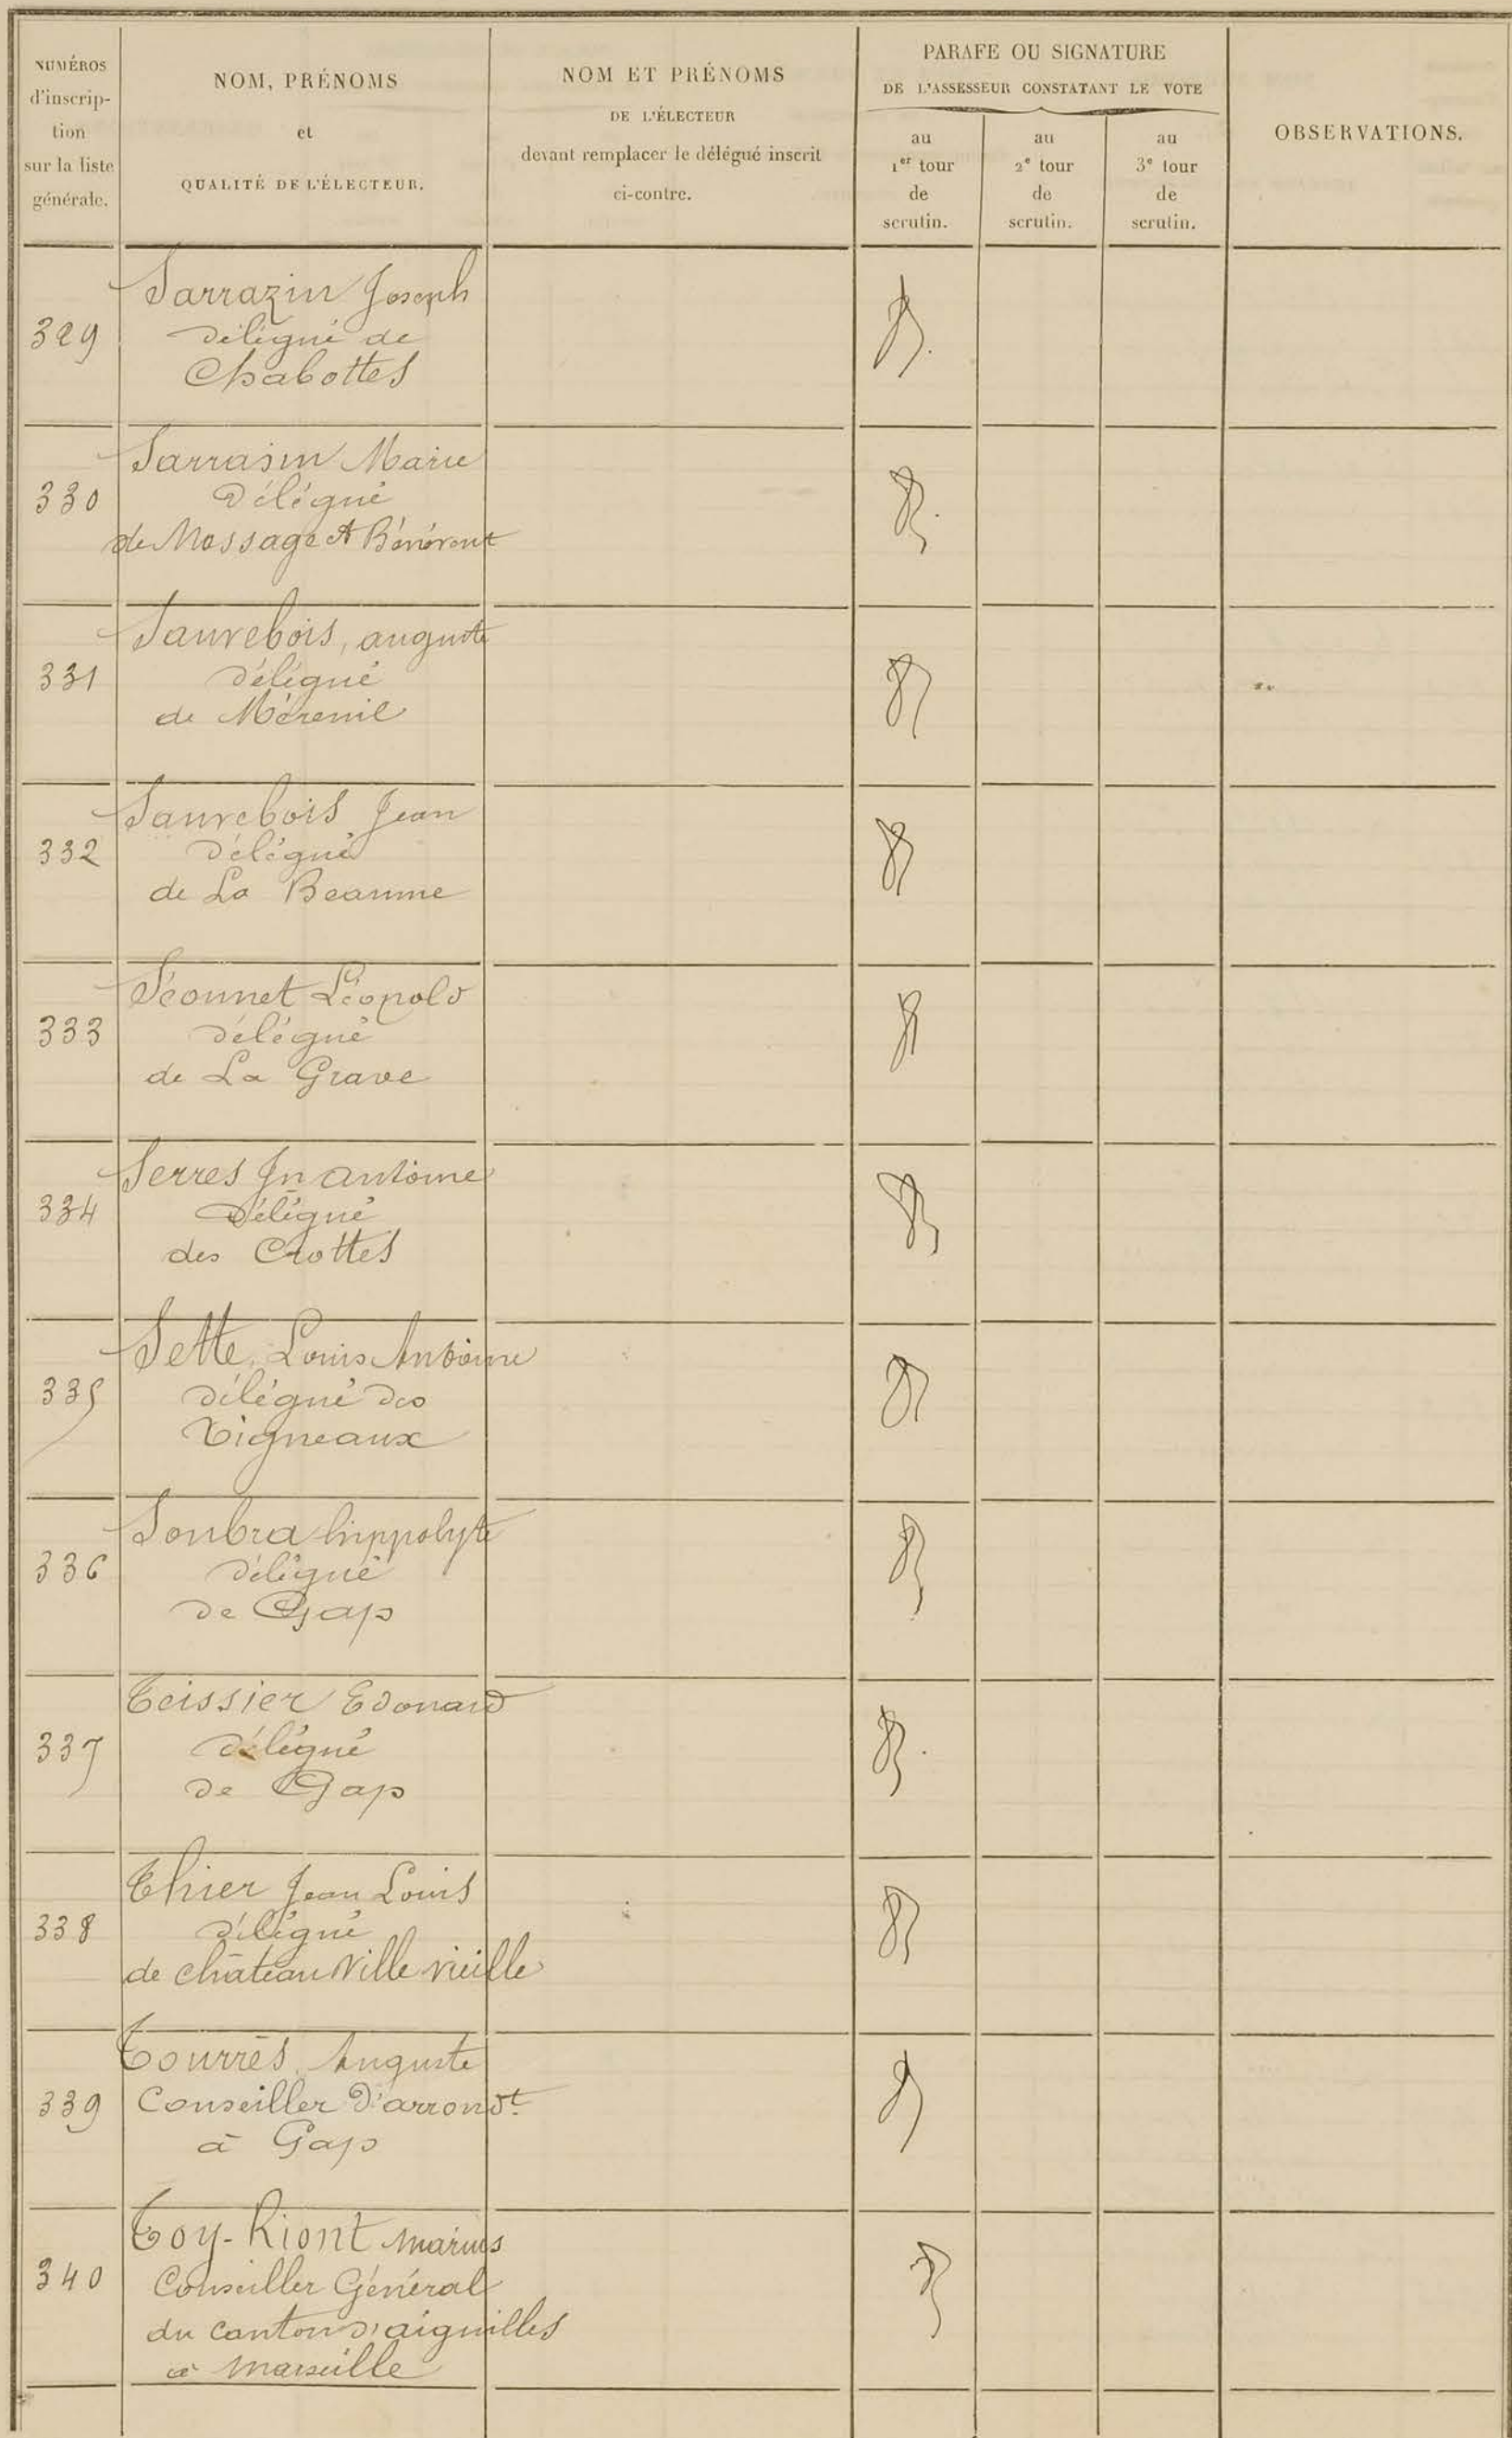 NUMÉROS
d'inscrip-
tion
sur la liste
générale.
NOM, PRÉNOMS
et
QUALITÉ DE L'ÉLECTEUR.
NOM ET PRÉNOMS
DE L'ÉLECTEUR
devant remplacer le délégué inscrit
ci-contre.
PARAFE OU SIGNATURE
DE L'ASSESSEUR CONSTATANT LE VOTE
au
1er tour
de
scrutin.
au
2e tour
de
scrutin.
au
3e tour
de
scrutin.
OBSERVATIONS.
Sarrazin Joseph
329 délégué de
Chabottes
Sarrasin Marie
330 Délégué
de Mossage et Bénévent
Sauvebois, auguste
331 délégué
de Méreuil
Sauvebois Jean
332 délégué
de La Beaume
Séonnet Léopold
333 délégué
de La Grave
Serres Jn antoine
334 Délégué
des Crottes
Sette, Louis Antoine
335 délégué des
Vigneaux
Soubra hippolyte
336 délégué
de Gap
Teissier Edouard
337 délégué
de Gap
Thier Jean Louis
338 délégué
de château Ville vieille
Tourrès, Auguste
339 Conseiller d'arrondt.
à Gap
Toy-Riont marius
340 Conseiller Général
du canton d'aiguilles
à marseille